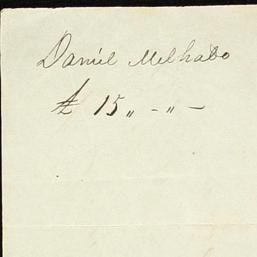 Daniel Melhado
£ 15 " - " -